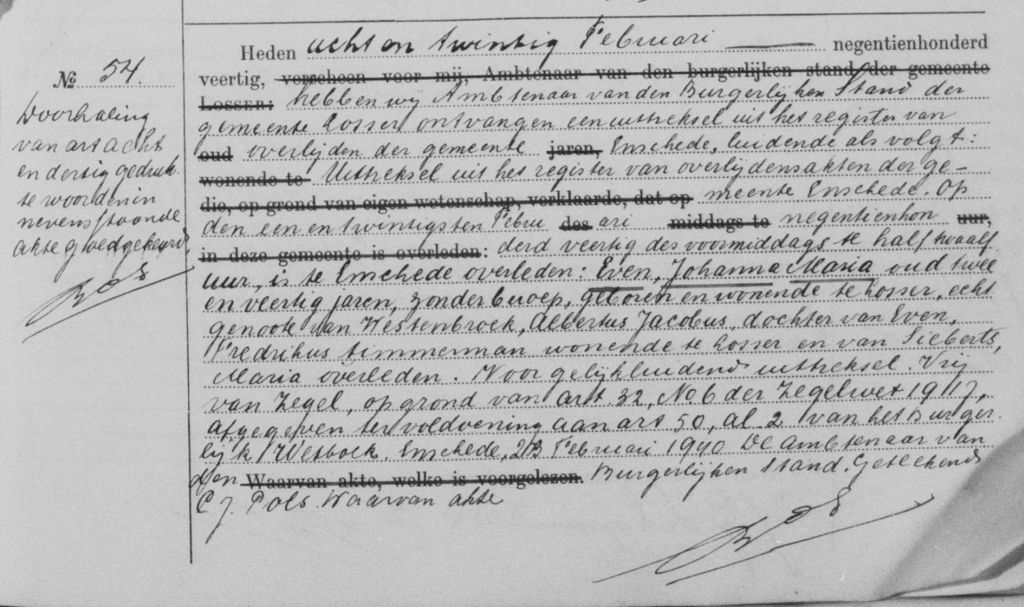 № 54.
Doorhaling
van art acht
en dertig gedruk-
te woorden in
nevenstaande
akte goedgekeurd
Heden acht en twintig Februari negentienhonderd
veertig, verscheen voor mij, Ambtenaar van den burgerlijken stand der gemeente
LOSSER: hebben wij Ambtenaar van den Burgerlijken Stand der
gemeente Losser ontvangen een uittreksel uit het register van
oud overlijden der gemeente jaren, Enschede, luidende als volgt:
wonende te Uittreksel uit het register van overlijdensakten der ge-
die, op grond van eigen wetenschap, verklaarde, dat op meente Enschede. Op
den een en twintigsten Febru des ari middags te negentienhon uur,
in deze gemeente is overleden: derd veertig des voormiddags te half twaalf
uur, is te Enschede overleden: Even, Johanna Maria oud twee
en veertig jaren, zonder beroep, geboren en wonende te Losser, echt
genoote van Westenbroek, Albertus Jacobus, dochter van Even,
Fredrikus timmerman wonende te Losser en van Sieberts,
Maria overleden. Voor gelijkluidend uittreksel. Vrij
van Zegel, op grond van art. 32, No 6 der Zegelwet 1917,
afgegeven ter voldoening aan art 50, al. 2 van het Burger
lijk Wetboek. Enschede, 23 Februari 1940 De Ambtenaar van
den Waarvan akte, welke is voorgelezen. Burgerlijken Stand. Geteekend
C. J. Pols. Waarvan akte